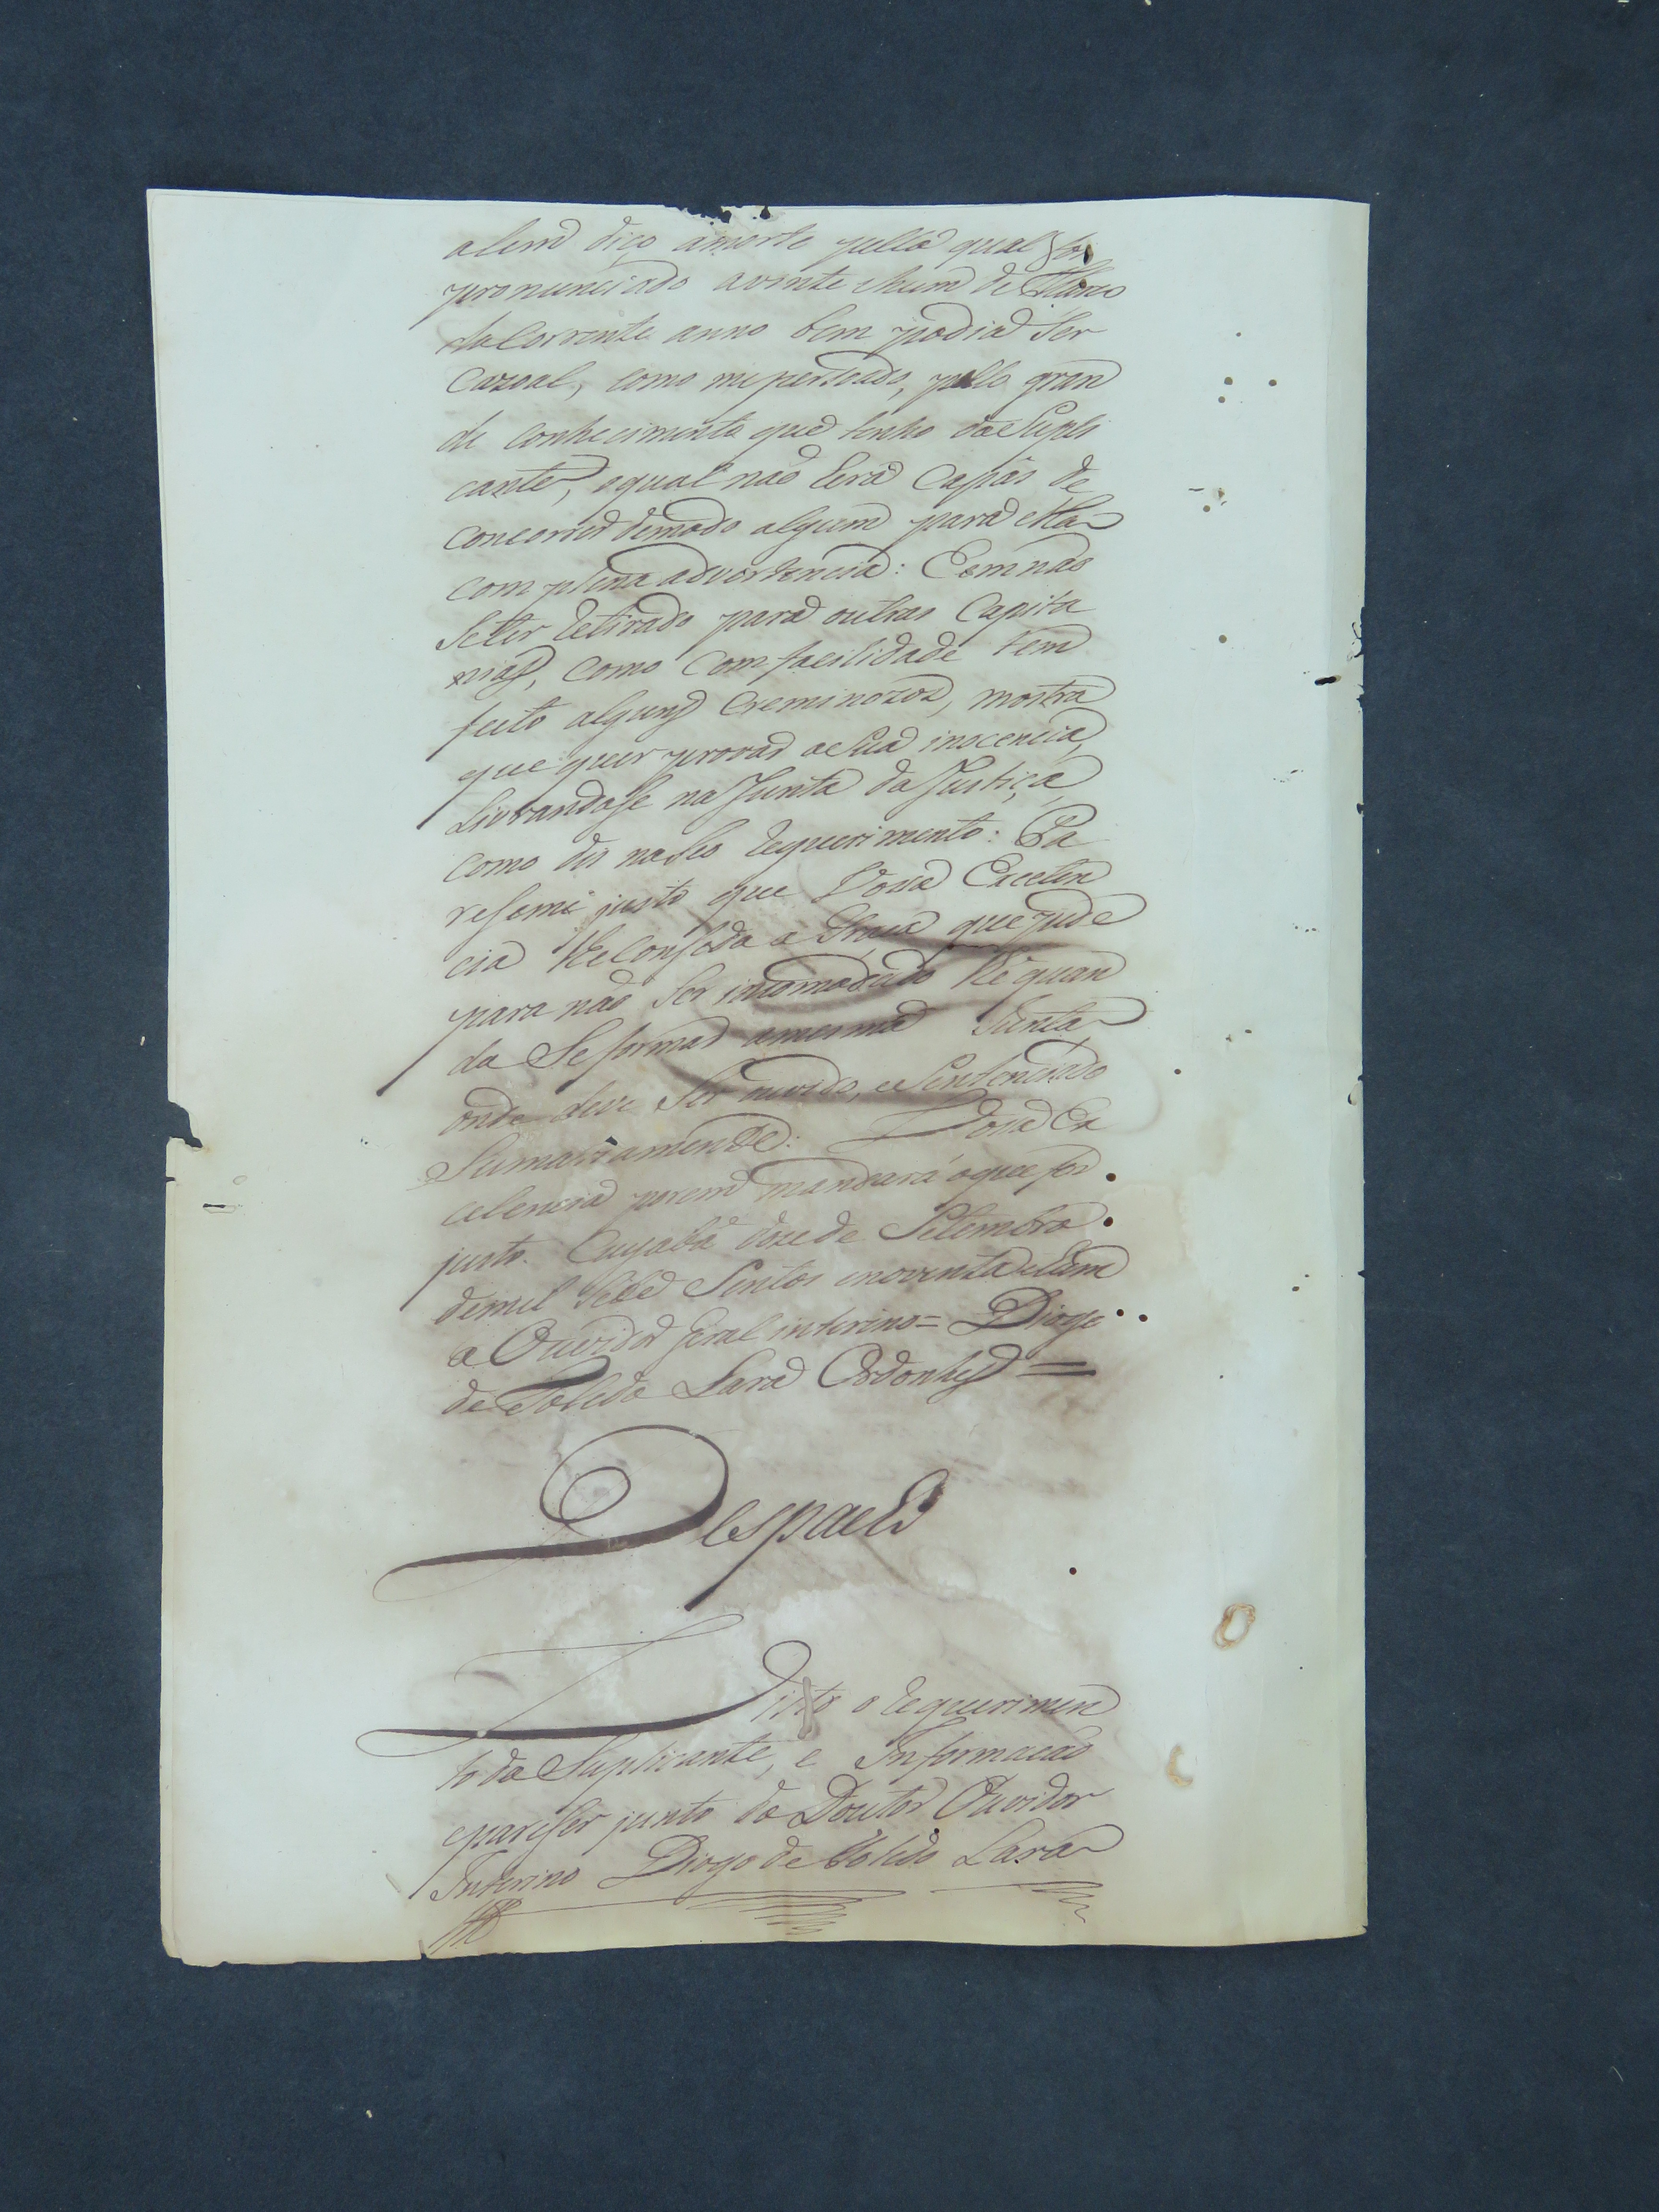 alem diço amorte pella qual foi
pronunciado avinte ehum de Março
do Corrente anno bem podia Ser
Cazoal, como mepersoado, pello gran
de conhecimento que tenho doSupli
cante, oqual não Será Capás de
concorrer demodo algum para ella
com plena advertencia: Eemnão
Seter retirado para outras Capita
nias, como comfacilidade tem
feito alguns Creminozos, mostra
que quer provar aSua inocencia,
Livrandose na Junta da Justiça,
como diz noSeo requerimento: Pa
reseme justo que Vossa Excelen
cia lhe Conseda a Graça que pede
para não Ser incomodado thé quan
do Seformar amesma Junta
onde deve Ser ouvido, eSentenciado
Sumariamente: Vossa Ex
celencia porem mandará oque for
justo. Cuyabá doze de Setembro
demil Sete Sentos enoventa ehum
o Ouvidor geral interino = Diogo
de Toledo Lara Ordonhes =
Despacho
Visto o requerimen
to do Suplicante, e Informacão
epareser junto do Doutor Ouvidor
Interino Diogo de Toledo Lara